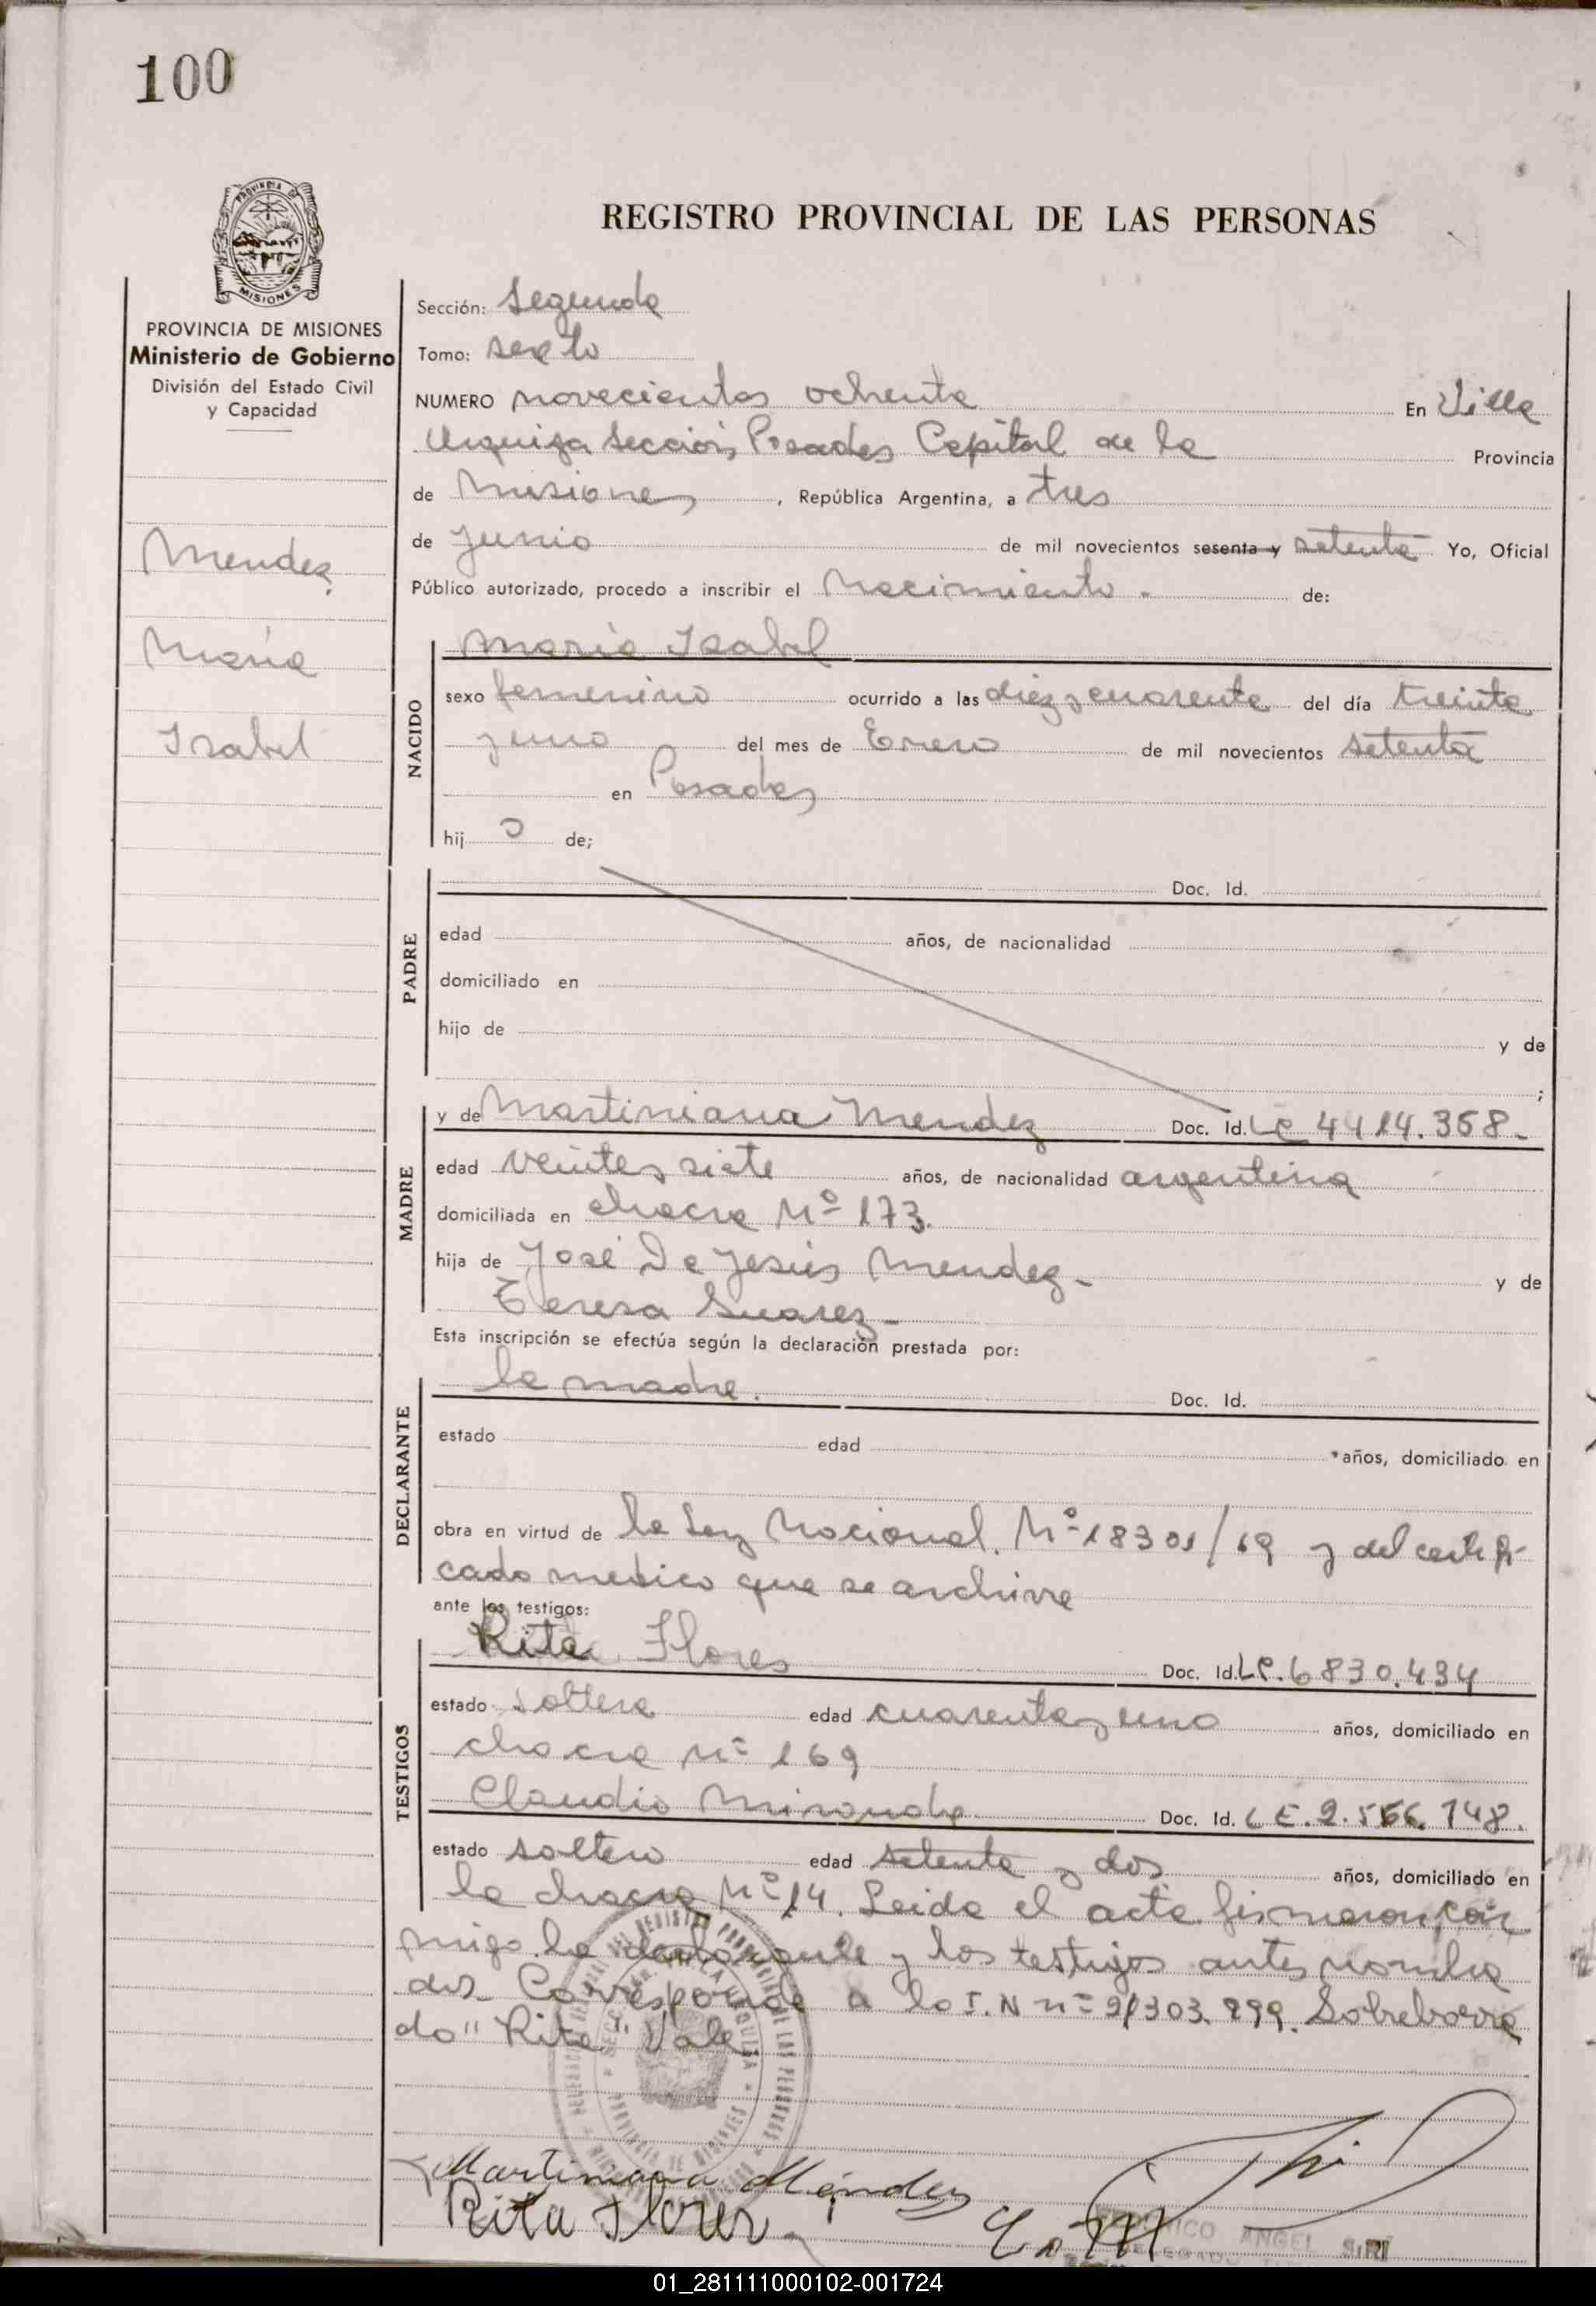 100
PROVINCIA DE
MISIONES
PROVINCIA DE MISIONES
Ministerio de Gobierno
División del Estado Civil
y Capacidad
Mendez
Maria
Isabel
REGISTRO PROVINCIAL DE LAS PERSONAS
Sección: Segunda
Tomo: sexto
NUMERO novecientos ochenta En Villa
Urquiza Sección Posadas Capital de la Provincia
de Misiones, República Argentina, a tres
de Junio de mil novecientos sesenta y setenta Yo, Oficial
Público autorizado, procedo a inscribir el Nacimiento. de:
NACIDO
Maria Isabel
sexo femenino ocurrido a las diez y cuarenta del día treinta
y uno del mes de Enero de mil novecientos setenta
en Posadas
hij a de;
PADRE
Doc. Id.
edad años, de nacionalidad
domiciliado en
hijo de y de
;
MADRE
y de Martiniana Mendez Doc. Id. LC 4414.358.-
edad veinte y siete años, de nacionalidad argentina
domiciliada en chacra Nº 173.
hija de José De Jesús Mendez - y de
Teresa Suarez -
Esta inscripción se efectúa según la declaración prestada por:
DECLARANTE
la madre. Doc. Id.
estado edad años, domiciliado en
obra en virtud de la Ley Nacional. Nº 18301/69 y del certifi-
cado medico que se archiva
ante los testigos:
TESTIGOS
Rita Flores Doc. Id. LC. 6830.434
estado soltera edad cuarenta y uno años, domiciliado en
chacra nº 169
Claudio Miranda Doc. Id. LE. 2.566.748.
estado soltero edad setenta y dos años, domiciliado en
la chacra Nº 14. Leida el acta firmaron con
migo la declarante y los testigos antes nombra
dos. Corresponde a la I.N nº 21303.899. Sobreborra
do "Rita" Vale
Martiniana Méndez
Rita Flores
ANGEL
01_281111000102-001724